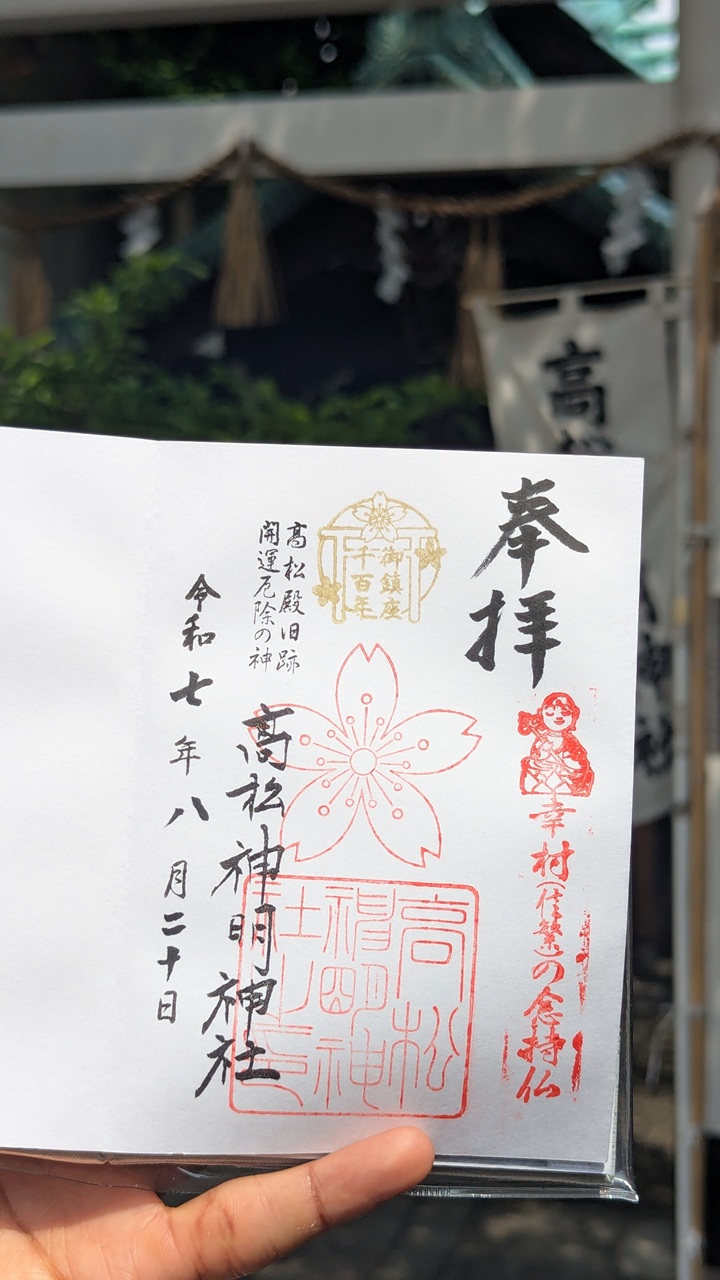 奉拝
幸村(信繁)の念持仏
御鎮座
千百年
高松殿旧跡
開運厄除の神
高松神明神社
高松
神明神
社之印
令和七年八月二十日
高松
神社